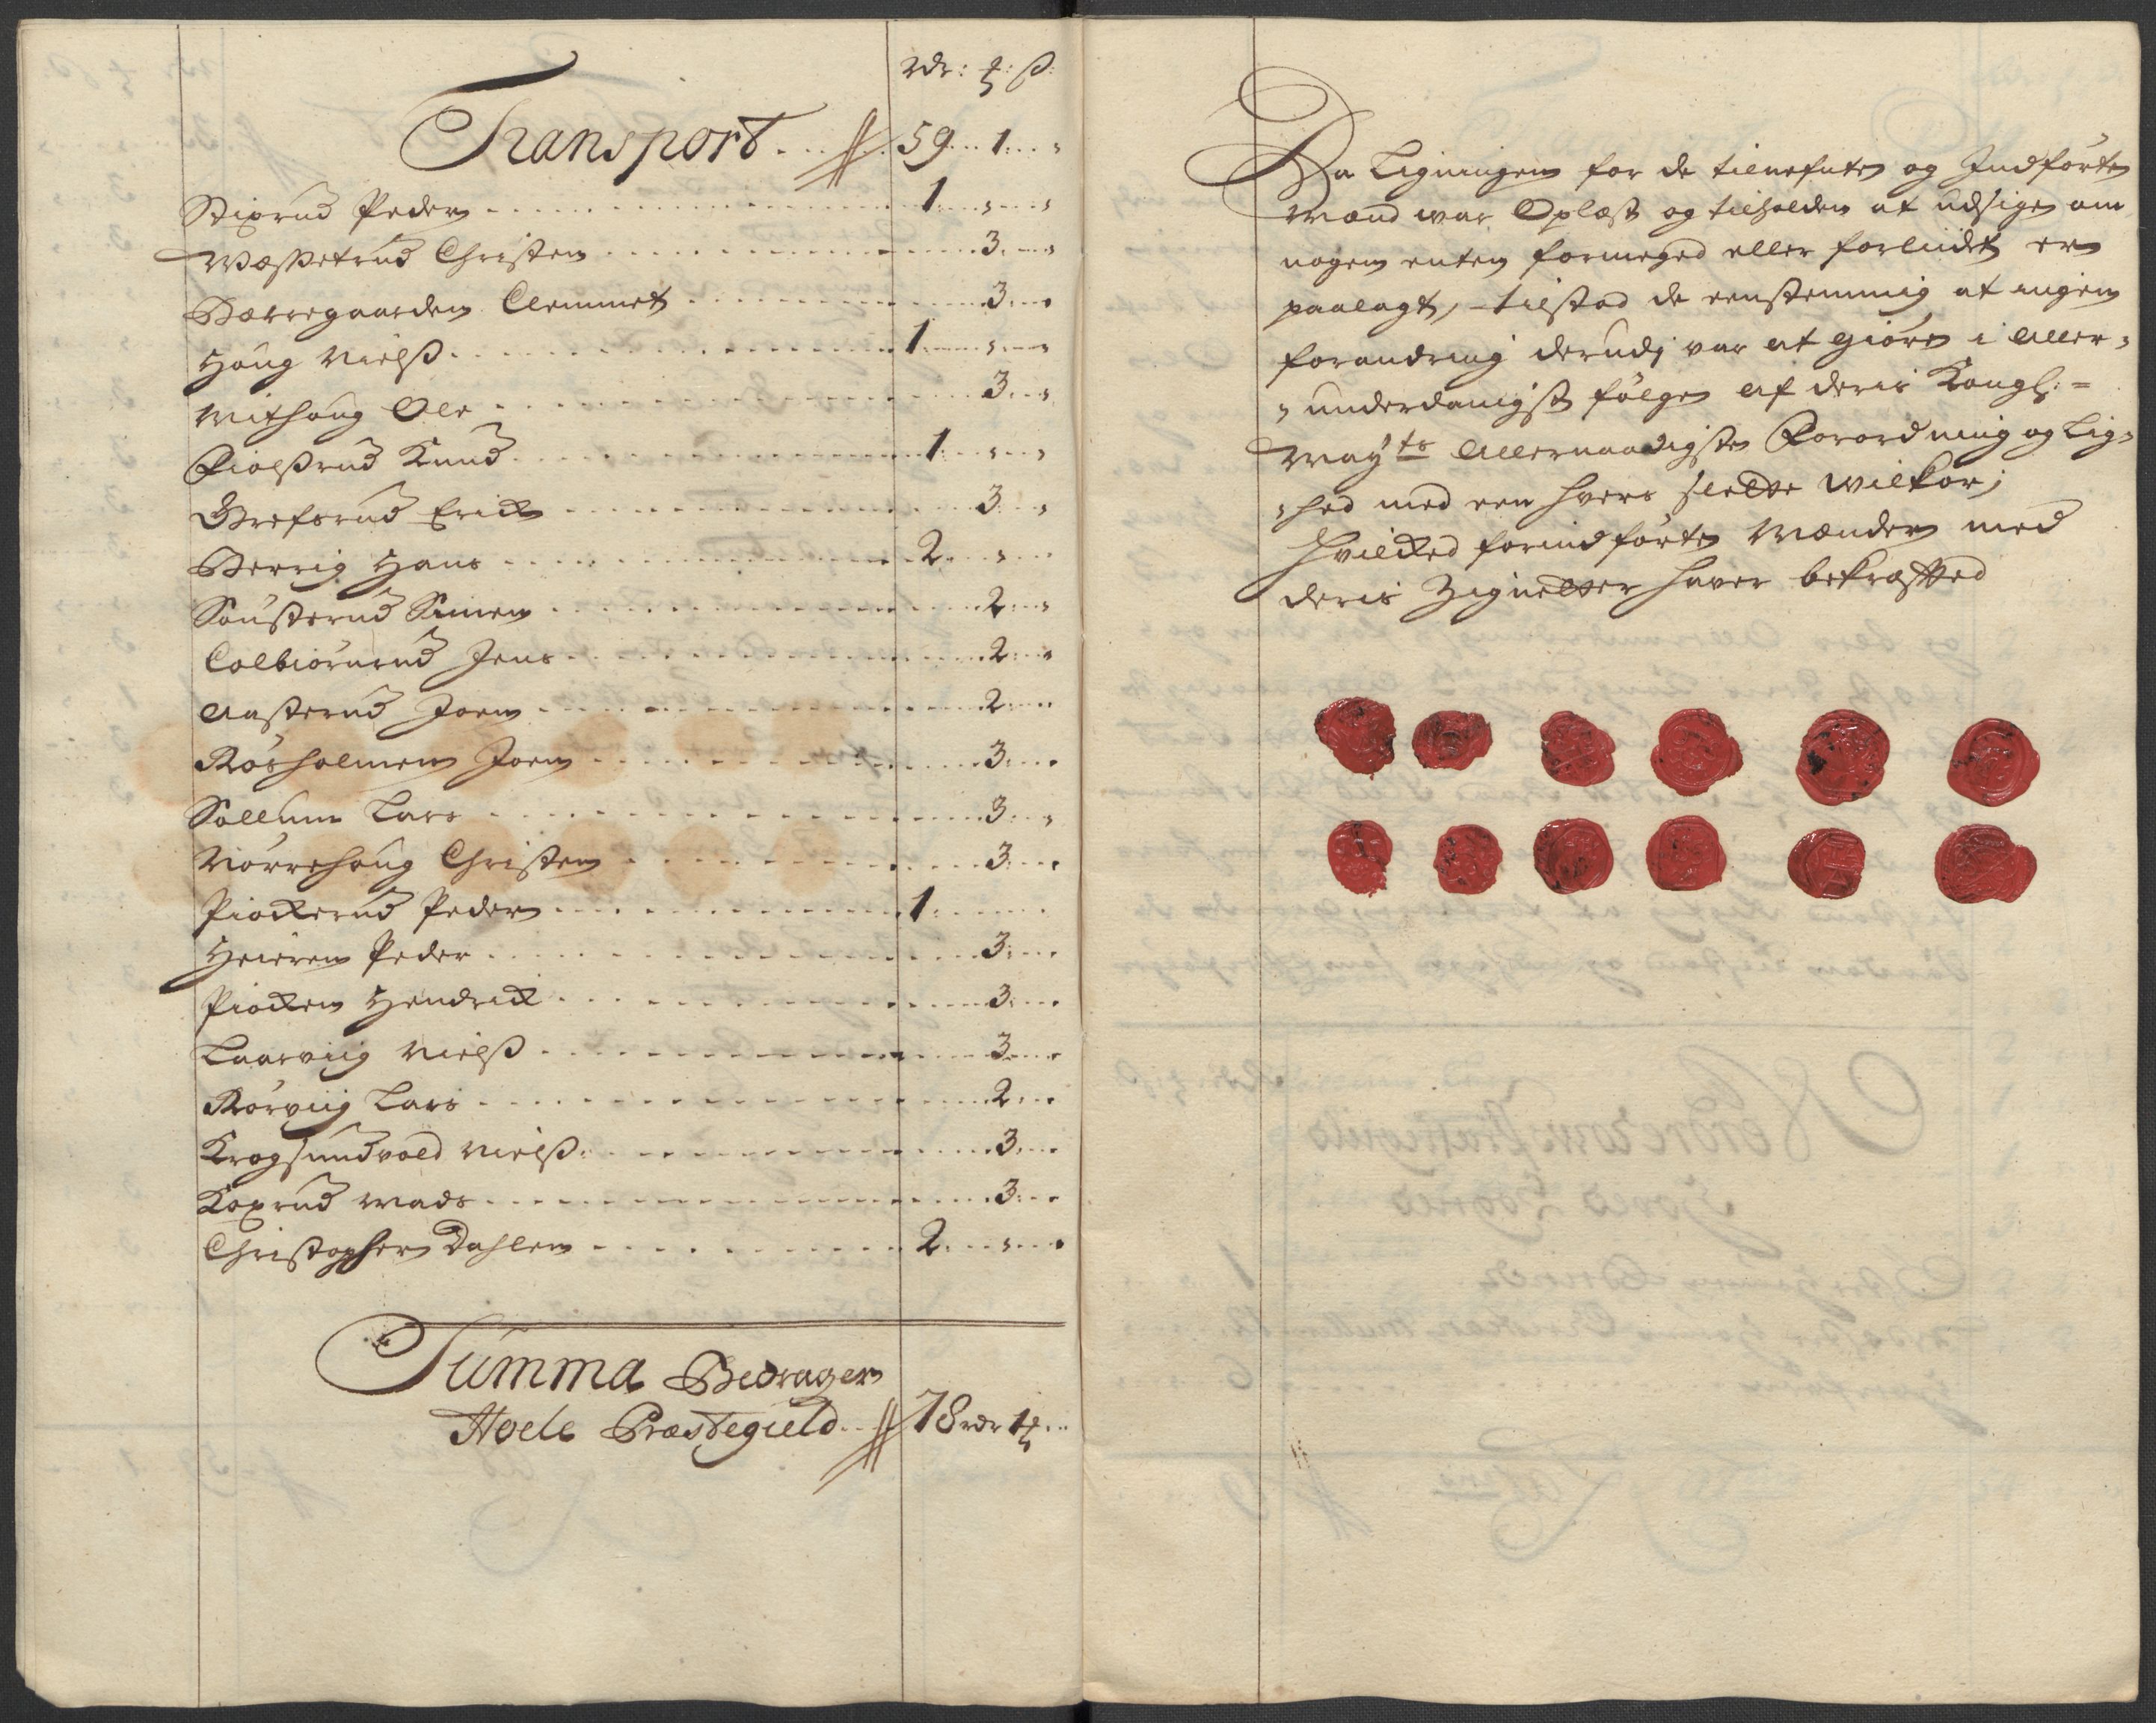 rdr: ꝃ: ß:
Transport ... 59 .. 1 .. „
Stixrud Peder ... 1 .. „ .. „
Wæssetrud Christen ... 3 .. „
Bærregaarden Clemmet ... 3 ..
Houg Nielß ... 1 .. „ .. „
Withoug Ole ... 3 .. „
Fiolßrud Knud ... 1 .. „ .. „
Grefsrud Erick ... 3 .. „
Berrig Hans ... 2 .. „ ..
Sousterud Simen ... 2 .. „
Colbiörnrud Jens ... 2 .. „
Aasterud Joen ... 2 ..
Rösholmen Joen ... 3 ..
Sollum Lars ... 3 .. „
Nörrehoug Christen ... 3 ..
Piockerud Peder ... 1 ..
Heieren Peder ... 3 ..
Piocken Hendrick ... 3 ..
Laarviig Nielß ... 3 ..
Rörviig Lars ... 2 ..
Krogsundvold Nielß ... 3 ..
Koxrud Mads ... 3 ..
Christopher Dahlen ... 2 .. „ ..
Summa Bedrager
Hoele Præstegield .. 78 rdr 1 ꝃ ..
Da Ligningen for de tilnefnte og Indförte
Mænd war Oplæst og tilholden at udsige om
nogen enten formeged eller forliidet er
paalagt, tilstod de eenstemmig at ingen
forandring derudj var at giöre i Aller„
„underdanigst fölge af deris Kongl: =
May^ts Allernaadigste Forordning og Lig„
„hed med een hvers slette Wilkor;
Hvilcked forindförte Mænder med
deris Zignetter haver bekræfted